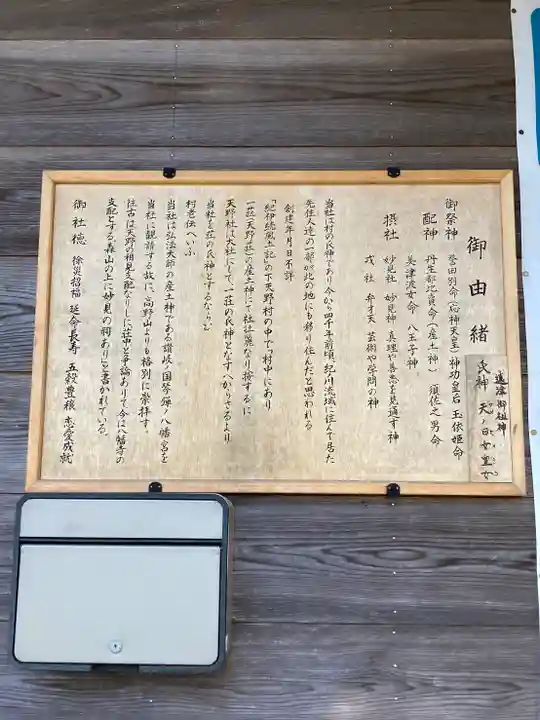 御由緒
遠津御祖神
氏神 天ノ日女皇女
御祭神 誉田別命(応神天皇)神功皇后 玉依姫命
配神 丹生都比賣命(産土神) 須佐之男命
美津波女命 八王子神
摂社 妙見社 妙見神 真理や善悪を見通す神
戎社 弁才天 芸術や学問の神
当社は村の氏神であり今から四千年前頃、紀ノ川流域に住んで居た
先住人達の一部が此の地にも移り住んだと思われる
創建年月日不詳
「紀伊続風土記」の下天野村の中で「村中にあり
一荘(天野荘)の産土神にて社壮麗なり按ずるに
天野社は大社にして、一荘の氏神となすへからさるより
当社を荘の氏神とするならむ
村老伝へいふ
当社は弘法大師の産土神である讃岐ノ国琴弾ノ八幡宮を
当社に観請する故に、高野山よりも格別に崇拝す。
往古は天野の相見支配なりしに荘中と争論ありて今は八幡寺の
支配とする森山の上に妙見の祠あり」と書かれている。
御社徳 除災招福 延命長寿 五穀豊穣 恋愛成就